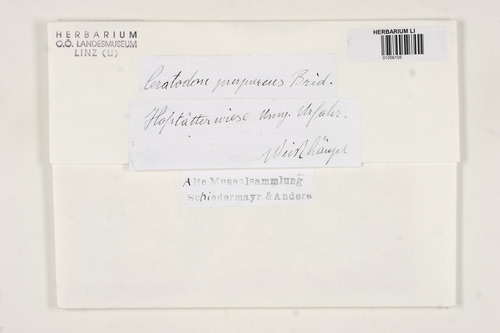 HERBARIUM
O.Ö. LANDESMUSEUM
LINZ (LI)
HERBARIUM LI
01056105
Ceratodon purpureus Brid.
Hofstätterwiese Umg. Urfahr.
Alte Museumlsammlung
Schiedermayr & Andere